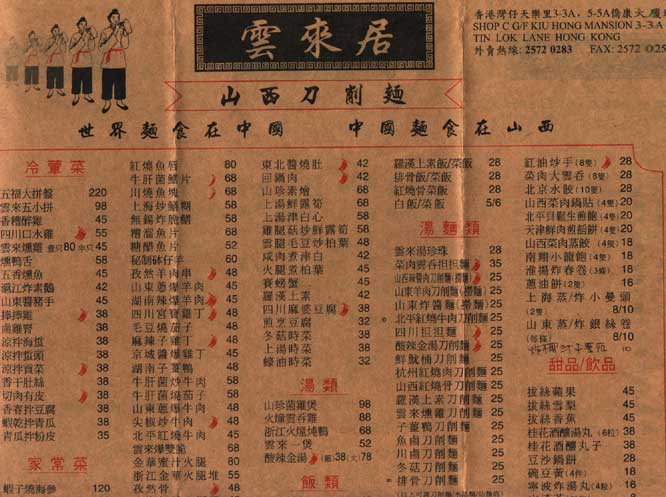 雲來居
香港灣仔天樂里3-3A, 5-5A僑康大廈
SHOP C G/F KIU HONG MANSION 3-3A
TIN LOK LANE HONG KONG
外賣熱線: 2572 0283 FAX: 2572
山西刀削麵
世界麵食在中國 中國麵食在山西
冷葷菜
五福大拼盤 220
雲來五小拼 98
香糟醉雞 45
四川口水雞 55
雲來燻雞 壹只80 半只45
燻鴨舌 58
五香燻魚 45
鎮江炸素鵝 42
山東醬豬手 45
棒棒雞 38
涼拌海蜇 38
涼拌蜇頭 38
香干肚絲 38
切肉有皮 38
香春拌豆腐 38
蝦乾拌青瓜 38
青瓜拌粉皮 35
家常菜
蝦子燒海參 120
紅燒魚唇 80
牛肝菌鱔片 68
川燒魚塊 68
上海炒鱔糊 58
無錫炸脆鱔 58
糟溜魚片 68
糖醋魚片 52
秘制砵仔羊 60
孜然羊肉串 48
山東蔥爆羊肉 48
湖南辣爆羊肉 48
四川宮寶雞丁 48
毛豆燒茄子 48
麻辣子雞丁 48
京城醬爆雞丁 45
湖南子薑鴨 48
牛肝菌炒牛肉 58
牛肝菌燒茄子 58
山東蔥爆牛肉 48
尖椒炒牛肉 48
北平紅燒牛肉 48
雲來爆雙脆 68
金華蜜汁火腿 80
浙江金華火腿堆 55
孜然骨 48
東北醬燒肚 42
回鍋肉 42
山珍素燴 68
上湯鮮露筍 68
上湯津白心 58
雞腿菇炒鮮露筍 58
雲腿毛豆炒柏葉 48
咸肉煮津白 42
火腿煮柏葉 45
賽螃蟹 45
羅漢上素 42
四川麻婆豆腐 38
煎烹豆腐 32
冬菇時菜 38
上湯時菜 38
蠔油時菜 32
湯類
山珍菌雞煲 98
火爆雲吞雞 88
浙江火腿燉鴨 88
雲來一煲 52
酸辣金湯 38(大)78
飯類
羅漢上素飯/菜飯 28
排骨飯/菜飯 28
紅燒骨菜飯 28
白飯/菜飯 5/6
湯麵類
雲來湯珍珠 28
菜肉雲吞担担麵 35
山東炸醬麵
北平紅燒牛肉刀削麵
四川担担麵
酸辣金湯刀削麵
鮮魷桶刀削麵
杭州紅燒肉刀削麵
山西紅燒骨刀削麵
羅漢上素刀削麵
雲來燻雞刀削麵
子薑鴨刀削麵
魚南刀削麵
川南刀削麵
冬菇刀削麵
排骨刀削麵
紅油炒手(8隻) 28
菜肉大雲吞(8隻) 28
北京水餃(10隻) 20
山西菜肉鍋貼(4隻) 20
北平貝鬆生煎飽(4隻) 20
天津鮮肉煎餡餅(4隻) 20
山西菜肉蒸餃(4隻) 18
南翔小籠飽(4隻) 18
淮揚炸春卷(3條) 18
蔥油餅(2隻) 16
上海蒸/炸小曼頭
(2隻) 8/10
山東蒸/炸銀絲卷
(每條) 8/10
甜品/飲品
拔絲蘋果 45
拔絲雪梨 45
拔絲香蕉 45
桂花酒釀湯丸(6粒) 38
桂花酒釀丸子 38
豆沙鍋餅 28
碗豆黃(4件) 18
寧波炸湯丸(4粒) 16